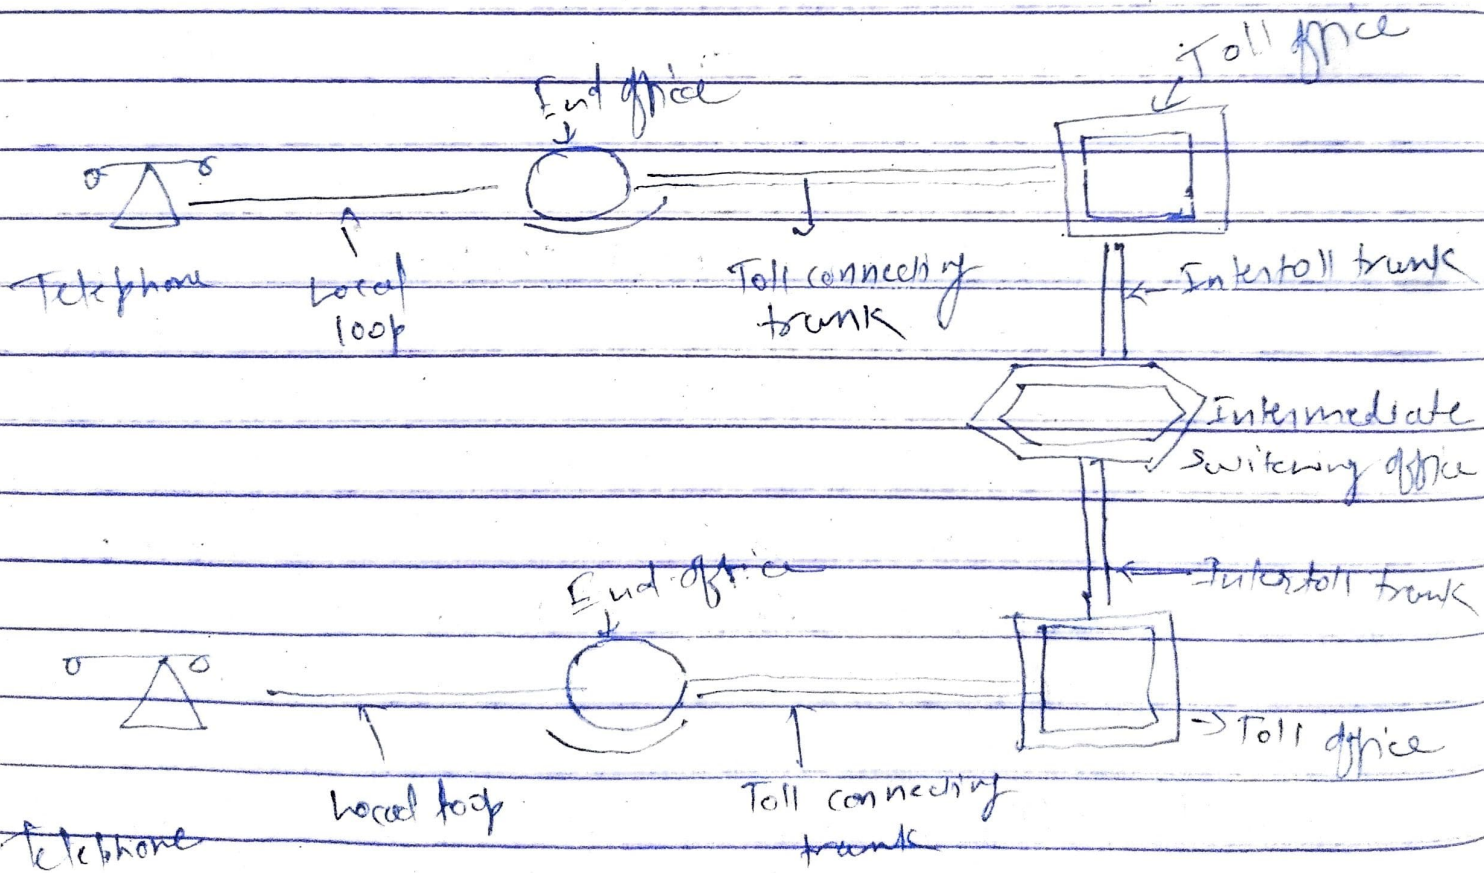 Toll office
End office
Telephone
Local
loop
Toll connecting
trunk
Intertoll trunk
Intermediate
switching office
End office
Intertoll trunk
Toll office
Local loop
Toll connecting
trunk
Telephone